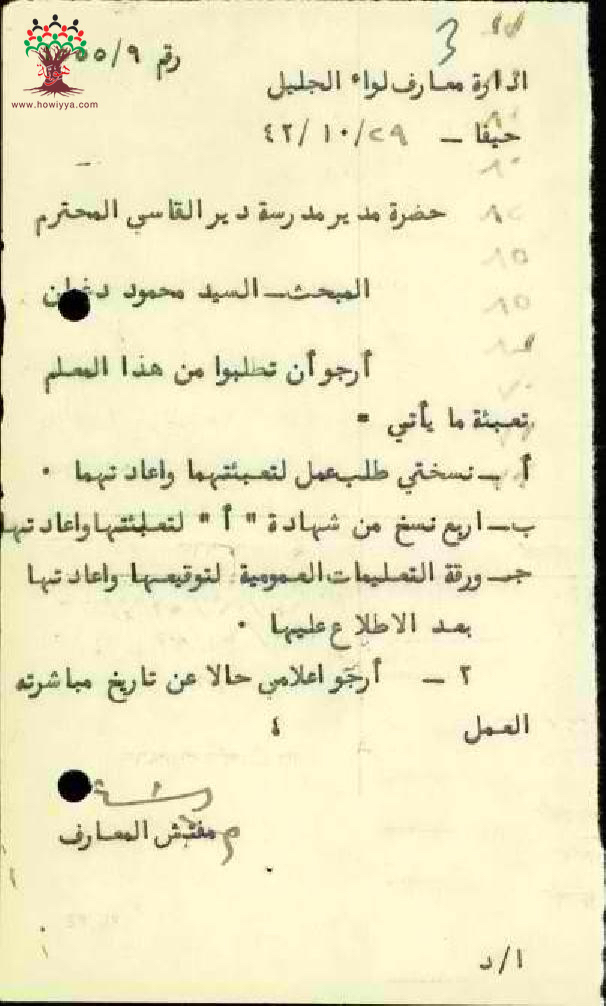 www.howiyya.com
3
رقم ٥٥/٩
ادارة معارف لواء الجليل
حيفا ــ ٤٢/١٠/٢٩
حضرة مدير مدرسة دير القاسي المحترم
المبحث ــ السيد محمود دغمان
أرجو أن تطلبوا من هذا المعلم
تعبئة ما يأتي =
أ ــ نسختي طلب عمل لتعبئتهما واعادتهما ٠
ب ــ اربع نسخ من شهادة " أ " لتعبئتها واعادتها
جـ ــ ورقة التعليمات العمومية لتوقيعها واعادتها
بعد الاطلاع عليها ٠
٢ ــ أرجو اعلامي حالا عن تاريخ مباشرته
العمل ٤
مفتش المعارف
ا/د